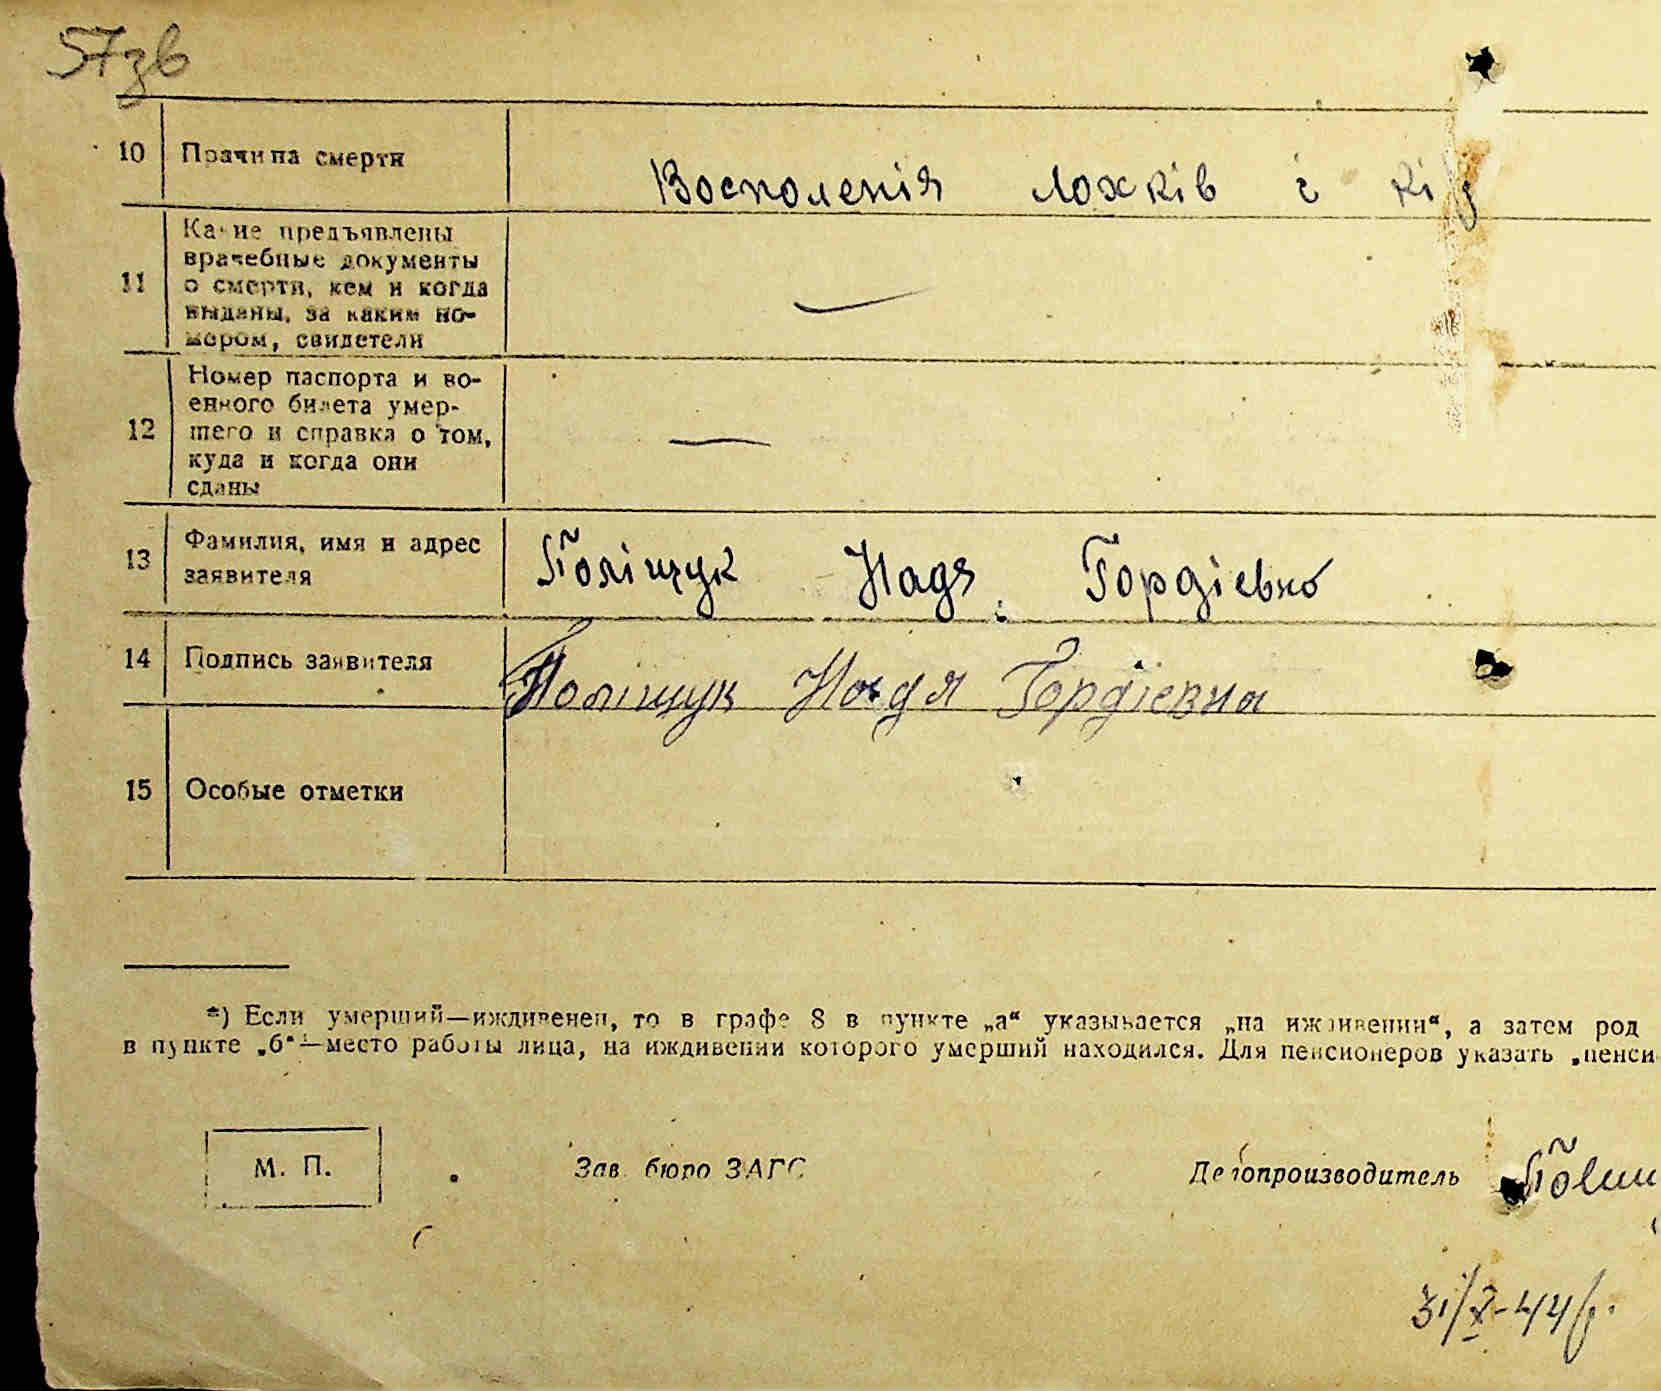 57зв
10 Причина смерти ВосполеніяМожків і
11 Какие предъявлены
врачебные документы
о смерти, кем и когда
выданы, за каким но-
мером, свидетели —
12 Номер паспорта и во-
енного билета умер-
шего и справка о том,
куда и когда они
сданы —
13 Фамилия, имя и адрес
заявителя Поліщук Надя Гордієвно
14 Подпись заявителя Поліщук Надя Гордіевна
15 Особые отметки
*) Если умерший—иждивенец, то в графе 8 в пункте „а“ указывается „на иждивении“, а затем род
в пункте „б“—место работы лица, на иждивении которого умерший находился. Для пенсионеров указать „пенси
М. П. Зав. бюро ЗАГС Делопроизводитель
31/X-44р.